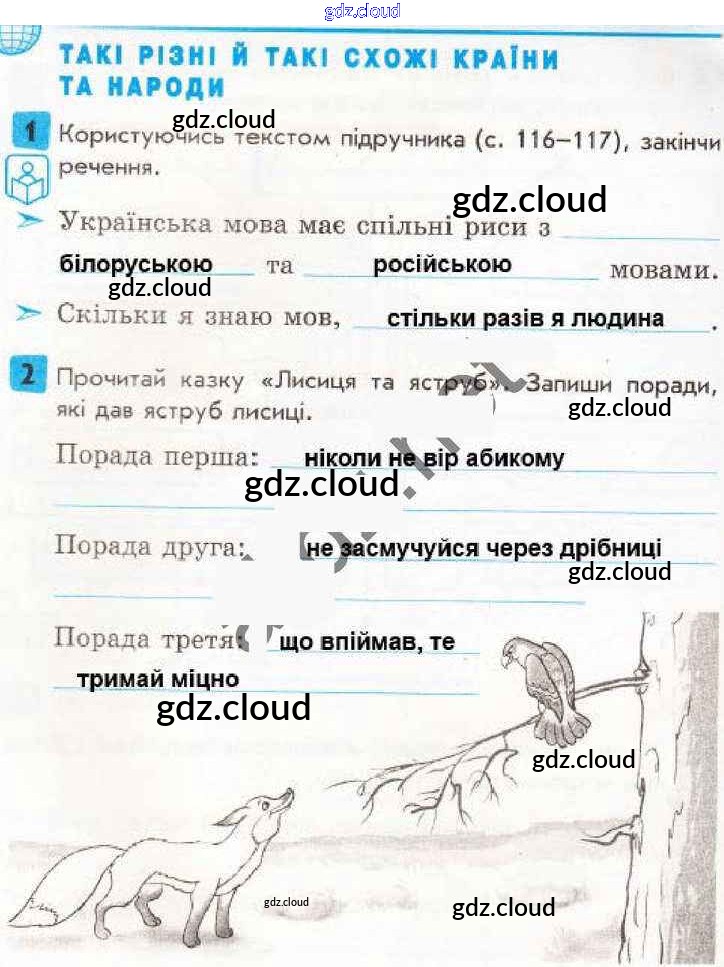 gdz.cloud
ТАКІ РІЗНІ Й ТАКІ СХОЖІ КРАЇНИ
ТА НАРОДИ
gdz.cloud
1 Користуючись текстом підручника (с. 116–117), закінчи
речення.
gdz.cloud
Українська мова має спільні риси з
білоруською та російською мовами.
gdz.cloud
Скільки я знаю мов, стільки разів я людина .
2 Прочитай казку «Лисиця та яструб». Запиши поради,
які дав яструб лисиці.
gdz.cloud
Порада перша: ніколи не вір абикому
gdz.cloud
Порада друга: не засмучуйся через дрібниці
gdz.cloud
Порада третя: що впіймав, те
тримай міцно
gdz.cloud
gdz.cloud
gdz.cloud
gdz.cloud